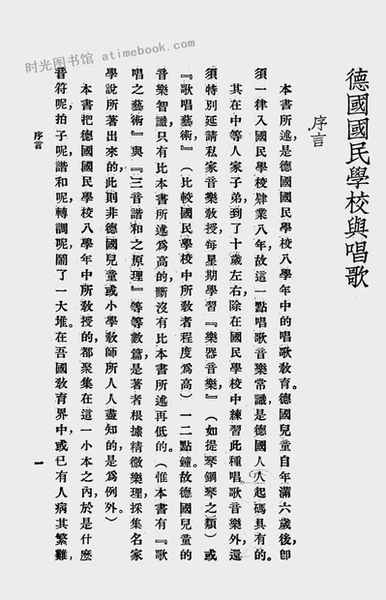 时光图书馆 atimebook.com
德國國民學校與唱歌
序言
本書所述是德國國民學校八學年中的唱歌敎育。德國兒童自年滿六歲後,卽
須一律入國民學校肄業八年,故這一點唱歌音樂常識是德國人人起碼具有的。
其在中等人家子弟,到了十歲左右,除在國民學校中練習此種唱歌音樂外,還
須特別延請私家音樂敎授,每星期學習『樂器音樂』(如提琴鋼琴之類)或
『歌唱藝術』(比較國民學校中所敎者程度爲高)一二點鐘。故德國兒童的
音樂智識,只有比本書所述爲高的,斷沒有比本書所述再低的。(惟本書有『歌
唱之藝術』與『三音諧和之原理』等等數篇,是著者根據精微樂理,採集名家
學說所著出來的,此則非德國兒童或小學敎師所人人盡知的,是爲例外。)
本書把德國國民學校八學年中所敎授的,都聚集在這一小本之內,於是什麼
音符呢,拍子呢,諧和呢,轉調呢,鬧了一大堆。在吾國敎育界中,或已有人病其繁難,
序言
一